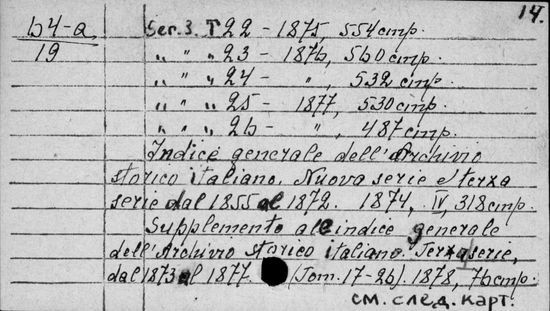 14.
64-a Ser. 3. T 22 - 1875, 554 стр.
19 „ „ „ 23 - 1876, 560 стр.
„ „ „ 24 - „ , 532 стр.
„ „ „ 25 - 1877, 530 стр.
„ „ „ 26 - „ , 487 стр.
Indice generale dell'Archivio
storico italiano. Nuova serie e terza
serie dal 1855 al 1872. 1874, IV, 318 стр.
Supplemento all'indice generale
dell'Archivio storico italiano. Terza serie,
dal 1873 al 1877. (Tom. 17-26). 1878, 76 стр.
см. след. карт.